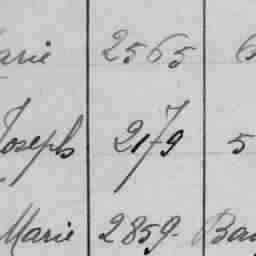 arie 2565 6
Joseph 2179 5
Marie 2859. Bay